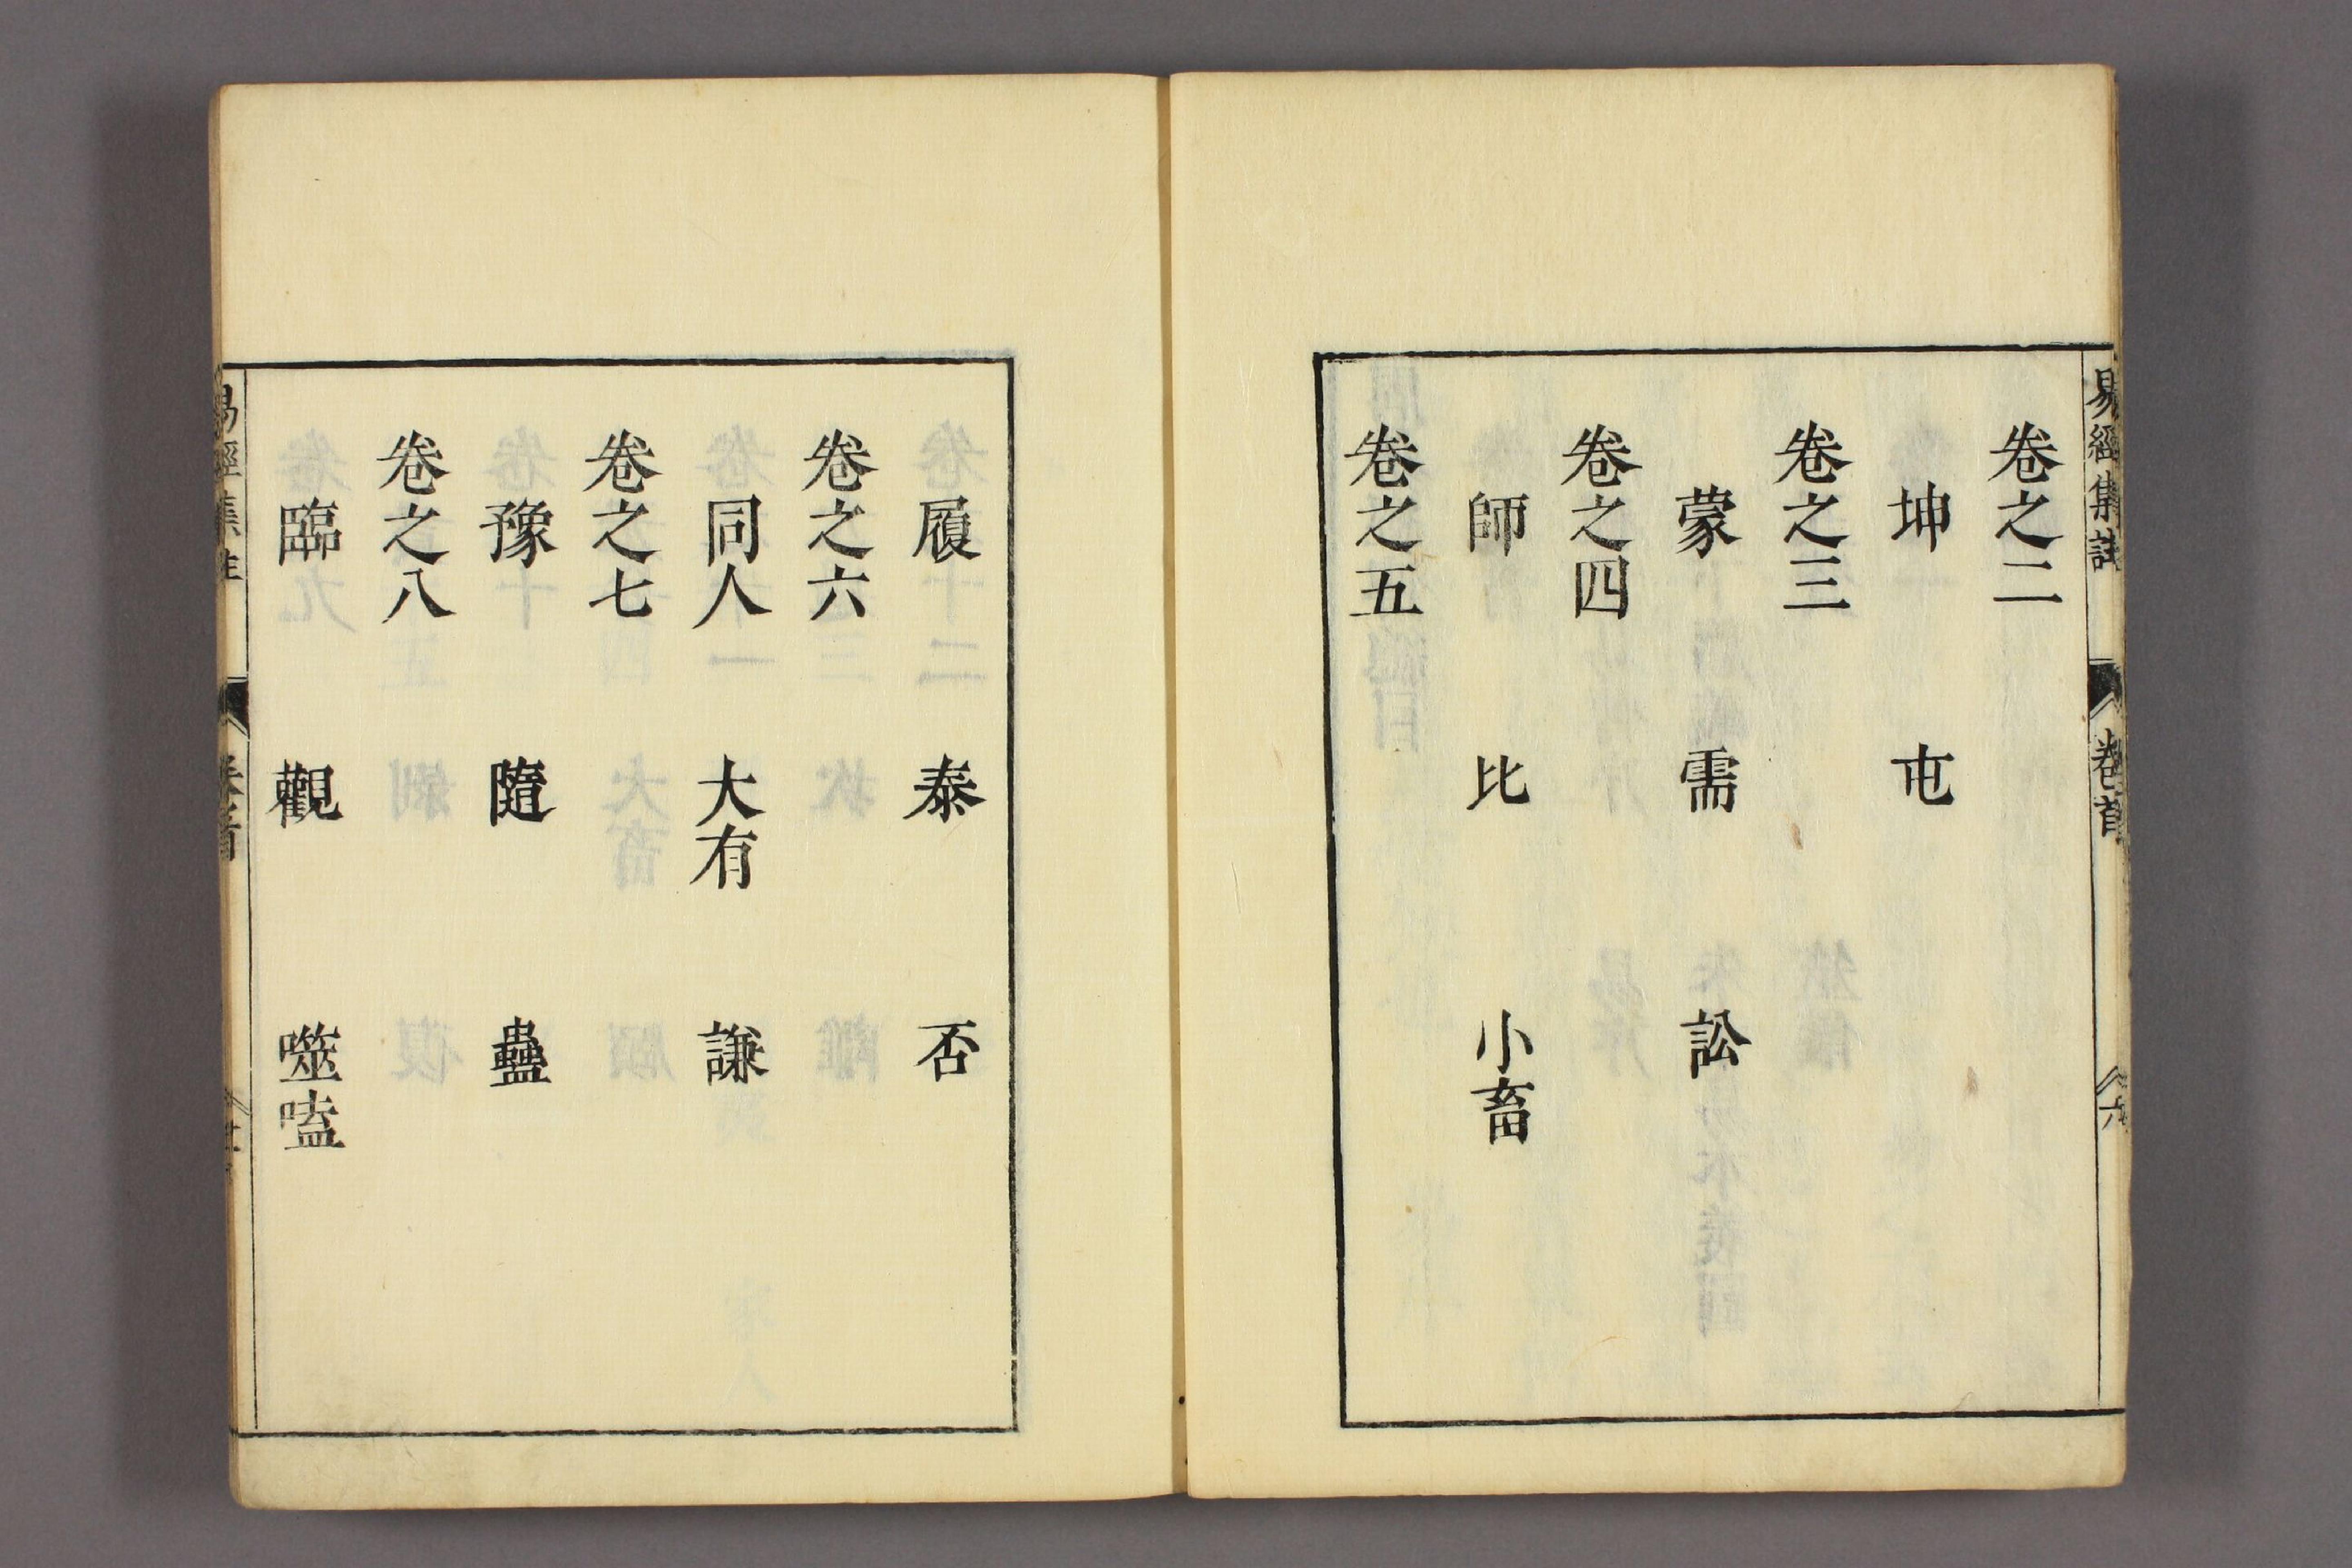 易經集註 卷首 六
卷之二
坤 屯
卷之三
蒙 需 訟
卷之四
師 比 小畜
卷之五
履 泰 否
卷之六
同人 大有 謙
卷之七
豫 隨 蠱
卷之八
臨 觀 噬嗑
易經集註 卷首